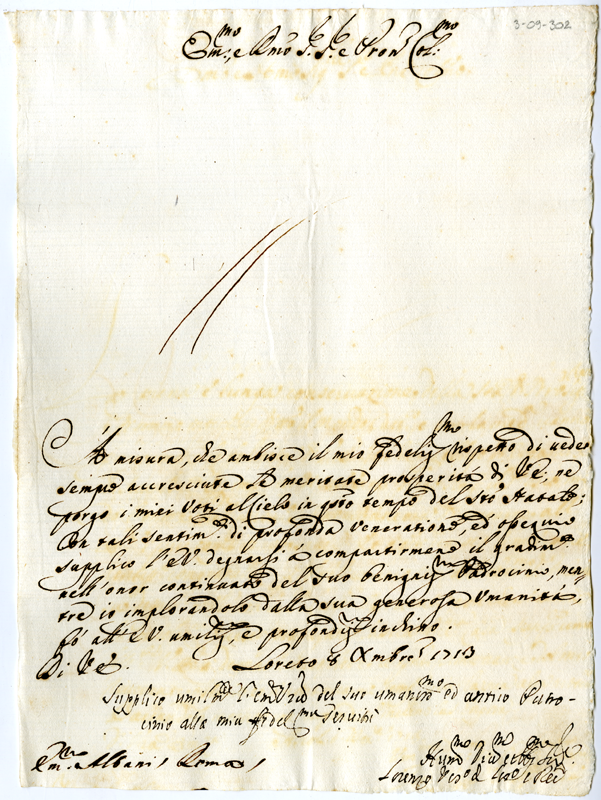 3-09-302
Em.mo e Rmo S.r S.r e Pron Col.mo
A misura, che ambisce il mio fedeliss.mo rispetto di vede
sempre accresciute le meritate prosperità di VE, ne
porgo i miei voti al Cielo in q.sto tempo del S.to Natale;
Con tali sentim.ti di profonda veneratione, ed ossequio
supplico l'EV. degnarsi à compartirmene il gradim.to
nell'onor continuato del suo benigniss.mo Padrocinio, men-
tre io implorandolo dalla sua generosa Umanità,
fò all'EV. umiliss.e, e profondiss.o inchino.
Di VE. Loreto 8 Xmbre 1713
Supplico umilm.te del suo umaniss.mo ed antico Patro-
cinio alla mia
Em.mo Albani, Roma
Hum.mo Div.mo
Lorenzo